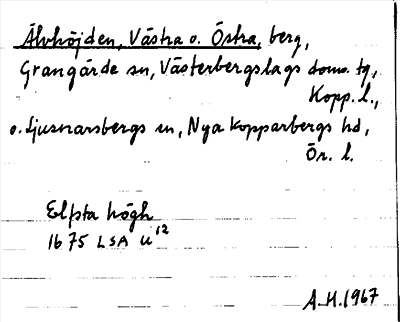 Älvhöjden, Västra o. Östra, berg,
Grangärde sn, Västerbergslags doms. tg,
Kopp. l.,
o. Ljusnarsbergs sn, Nya Kopparbergs hd,
Ör. l.
Elfsta högh
1675 LSA U 12
A.H. 1967